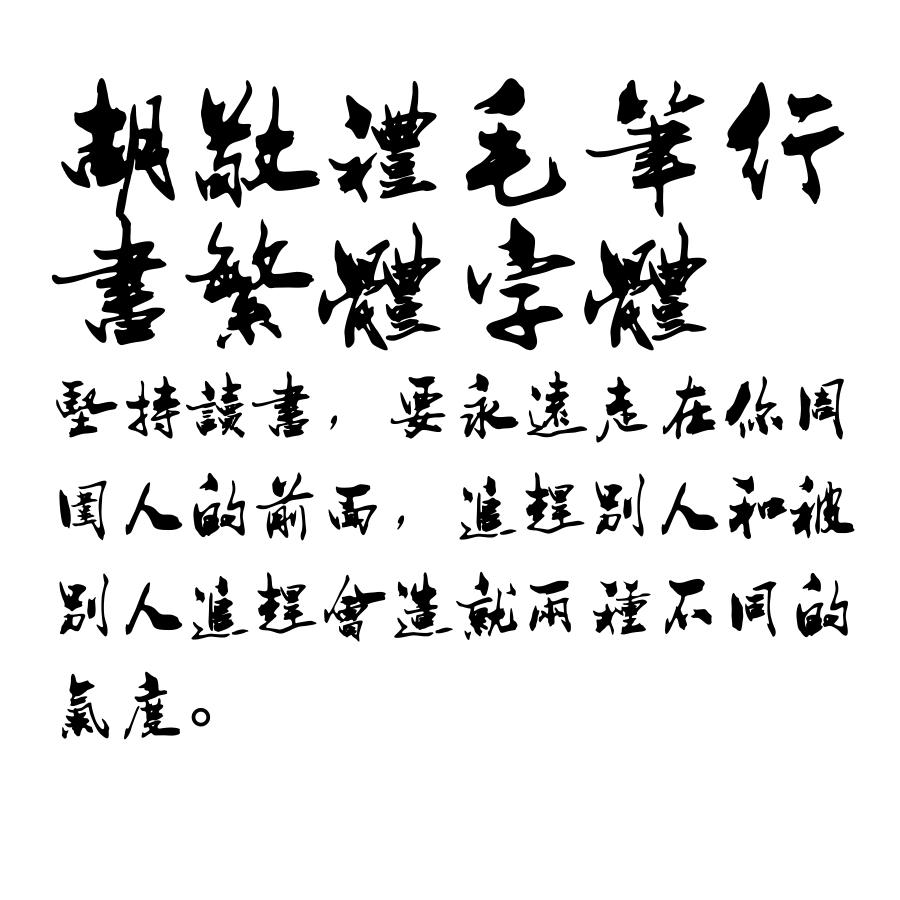 胡敬禮毛筆行
書繁體字體
堅持讀書，要永遠走在你周
圍人的前面，追趕別人和被
別人追趕會造就兩種不同的
氣度。